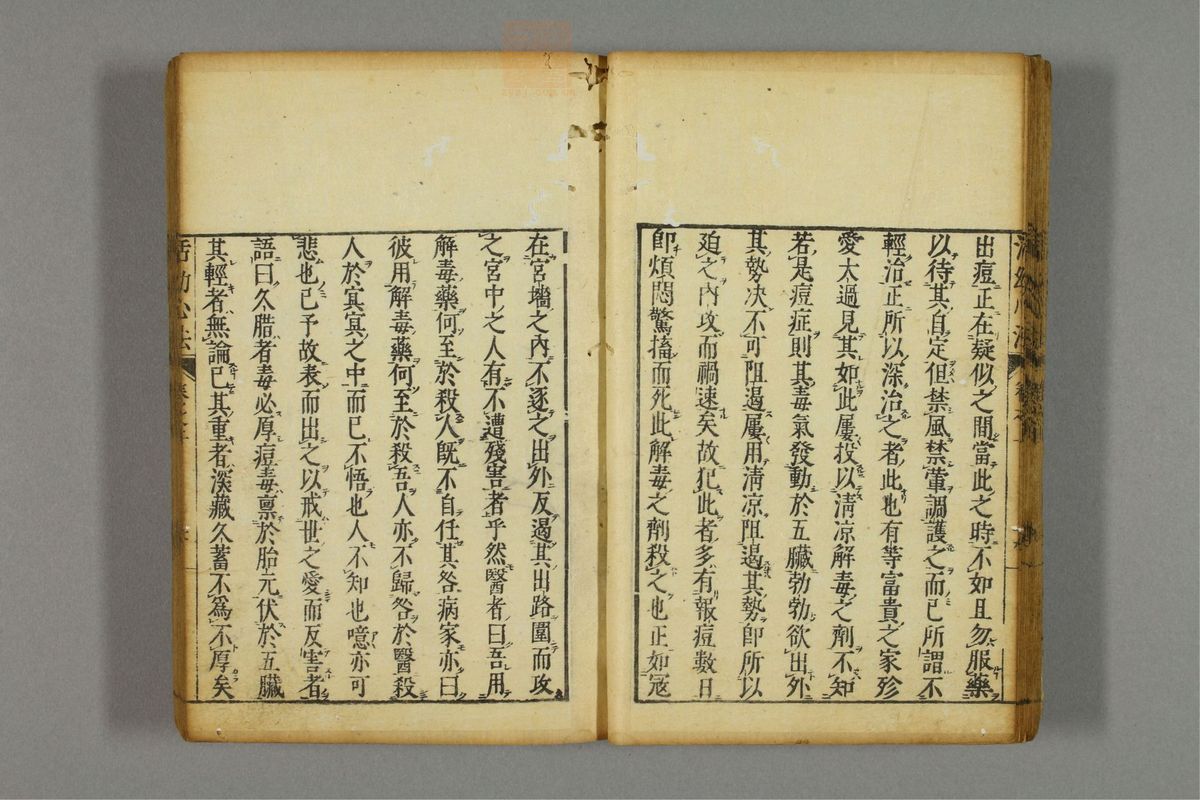 出痘正在疑似之間當此之時不如且勿服藥
以待其自定但禁風禁葷調護之而已所謂不
輕治正所以深治之者此也有等富貴之家珍
愛太過見其如此屢投以淸凉解毒之劑不知
若是痘症則其毒氣發動於五臟勃勃欲出外
其勢决不可阻遏屢用淸凉阻遏其勢卽所以
廹之內攻而禍速矣故犯此者多有報痘數日
卽煩悶驚搐而死此解毒之劑殺之也正如冦
在宮墻之內不逐之出外反遏其出路圍而攻
之宮中之人有不遭殘害者乎然醫者曰吾用
解毒藥何至於殺人旣不自任其咎病家亦曰
彼用解毒藥何至於殺吾人亦不歸咎於醫殺
人於冥冥之中而已不悟也人不知也噫亦可
悲也已予故表而出之以戒世之愛而反害者
語曰久腊者毒必厚痘毒禀於胎元伏於五臟
其輕者無論已其重者深藏久蓄不爲不厚矣
活幼心法